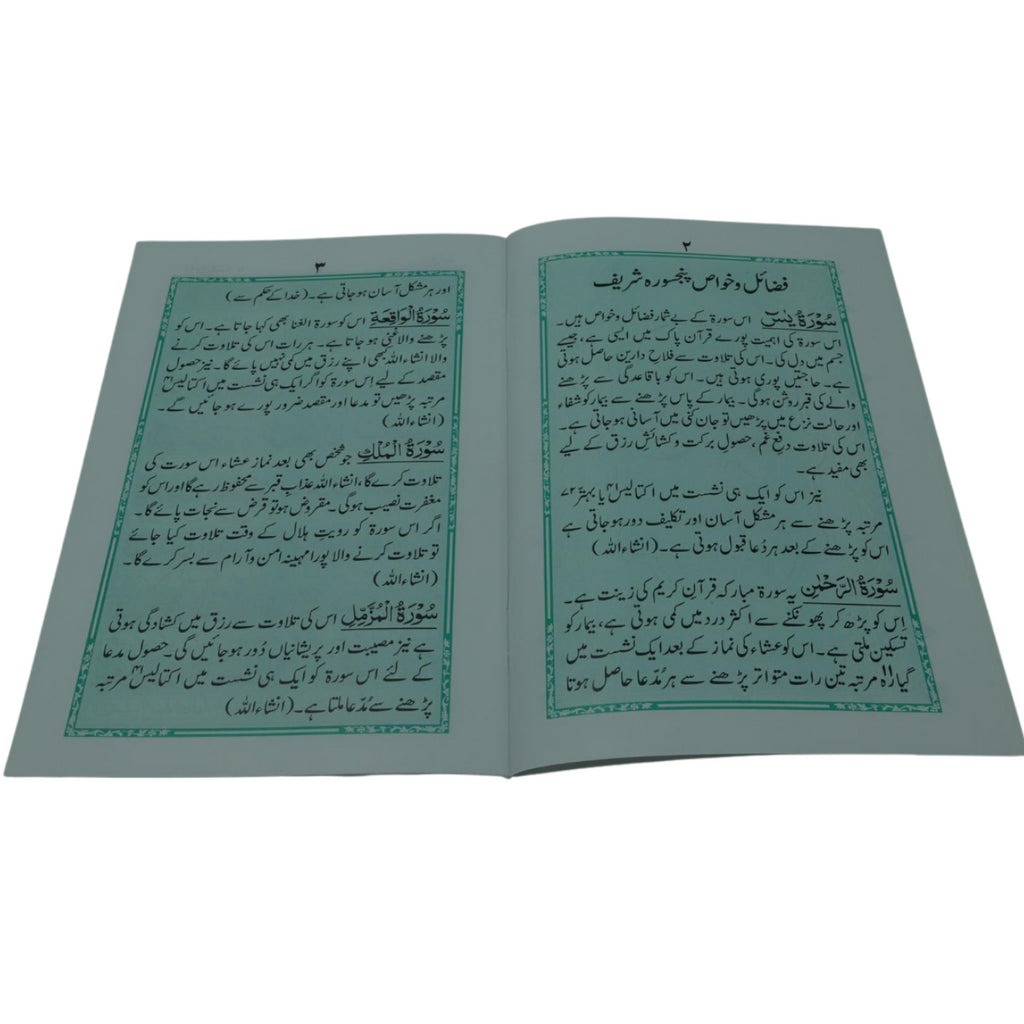 ۲
فضائل و خواص پنجسورہ شریف
سُوْرَةُ يٰسٓ اس سورۃ کے بے شمار فضائل و خواص ہیں۔
اس سورۃ کی اہمیت پورے قرآن پاک میں ایسی ہے، جیسے
جسم میں دل کی۔ اس کی تلاوت سے فلاحِ دارین حاصل ہوتی
ہے۔ حاجتیں پوری ہوتی ہیں۔ اس کو باقاعدگی سے پڑھنے
والے کی قبر روشن ہوگی۔ بیمار کے پاس پڑھنے سے بیمار کو شفاء
اور حالت نزع میں پڑھیں تو جان کنی میں آسانی ہوجاتی ہے۔
اس کی تلاوت دفعِ غم، حصولِ برکت و کشائشِ رزق کے لیے
بھی مفید ہے۔
نیز اس کو ایک ہی نشست میں اکتالیس ۴۱ یا بہتر ۷۲
مرتبہ پڑھنے سے ہر مشکل آسان اور تکلیف دور ہوجاتی ہے
اس کو پڑھنے کے بعد ہر دُعا قبول ہوتی ہے۔ (انشاء اللہ)
سُوْرَةُ الرَّحْمٰن یہ سورۃ مبارکہ قرآنِ کریم کی زینت ہے۔
اِس کو پڑھ کر پھونکنے سے اکثر درد میں کمی ہوتی ہے، بیمار کو
تسکین ملتی ہے۔ اس کو عشاء کی نماز کے بعد ایک نشست میں
گیارہ ۱۱ مرتبہ تین رات متواتر پڑھنے سے ہر مُدعا حاصل ہوتا
۳
اور ہر مشکل آسان ہوجاتی ہے۔ (خدا کے حکم سے)
سُوْرَةُ الْوَاقِعَةِ اس کو سورۃ الغنا بھی کہا جاتا ہے۔ اس کو
پڑھنے والا غنی ہو جاتا ہے۔ ہر رات اس کی تلاوت کرنے
والا انشاء اللہ کبھی اپنے رزق میں کمی نہیں پائے گا۔ نیز حصول
مقصد کے لیے اِس سورۃ کو اگر ایک ہی نشست میں اکتالیس ۴۱
مرتبہ پڑھیں تو مدعا اور مقصد ضرور پورے ہو جائیں گے۔
(انشاء اللہ)
سُوْرَةُ الْمُلْكِ جو شخص بھی بعد نماز عشاء اس سورت کی
تلاوت کرے گا، انشاء اللہ عذابِ قبر سے محفوظ رہے گا اور اس کو
مغفرت نصیب ہوگی۔ مقروض ہو تو قرض سے نجات پائے گا۔
اگر اس سورۃ کو رویتِ ہلال کے وقت تلاوت کیا جائے
تو تلاوت کرنے والا پورا مہینہ امن و آرام سے بسر کرے گا۔
(انشاء اللہ)
سُوْرَةُ الْمُزَّمِّلِ اس کی تلاوت سے رزق میں کشادگی ہوتی
ہے نیز مصیبت اور پریشانیاں دُور ہوجائیں گی۔ حصول مدعا
کے لئے اس سورۃ کو ایک ہی نشست میں اکتالیس ۴۱ مرتبہ
پڑھنے سے مُدّعا ملتا ہے۔ (انشاء اللہ)